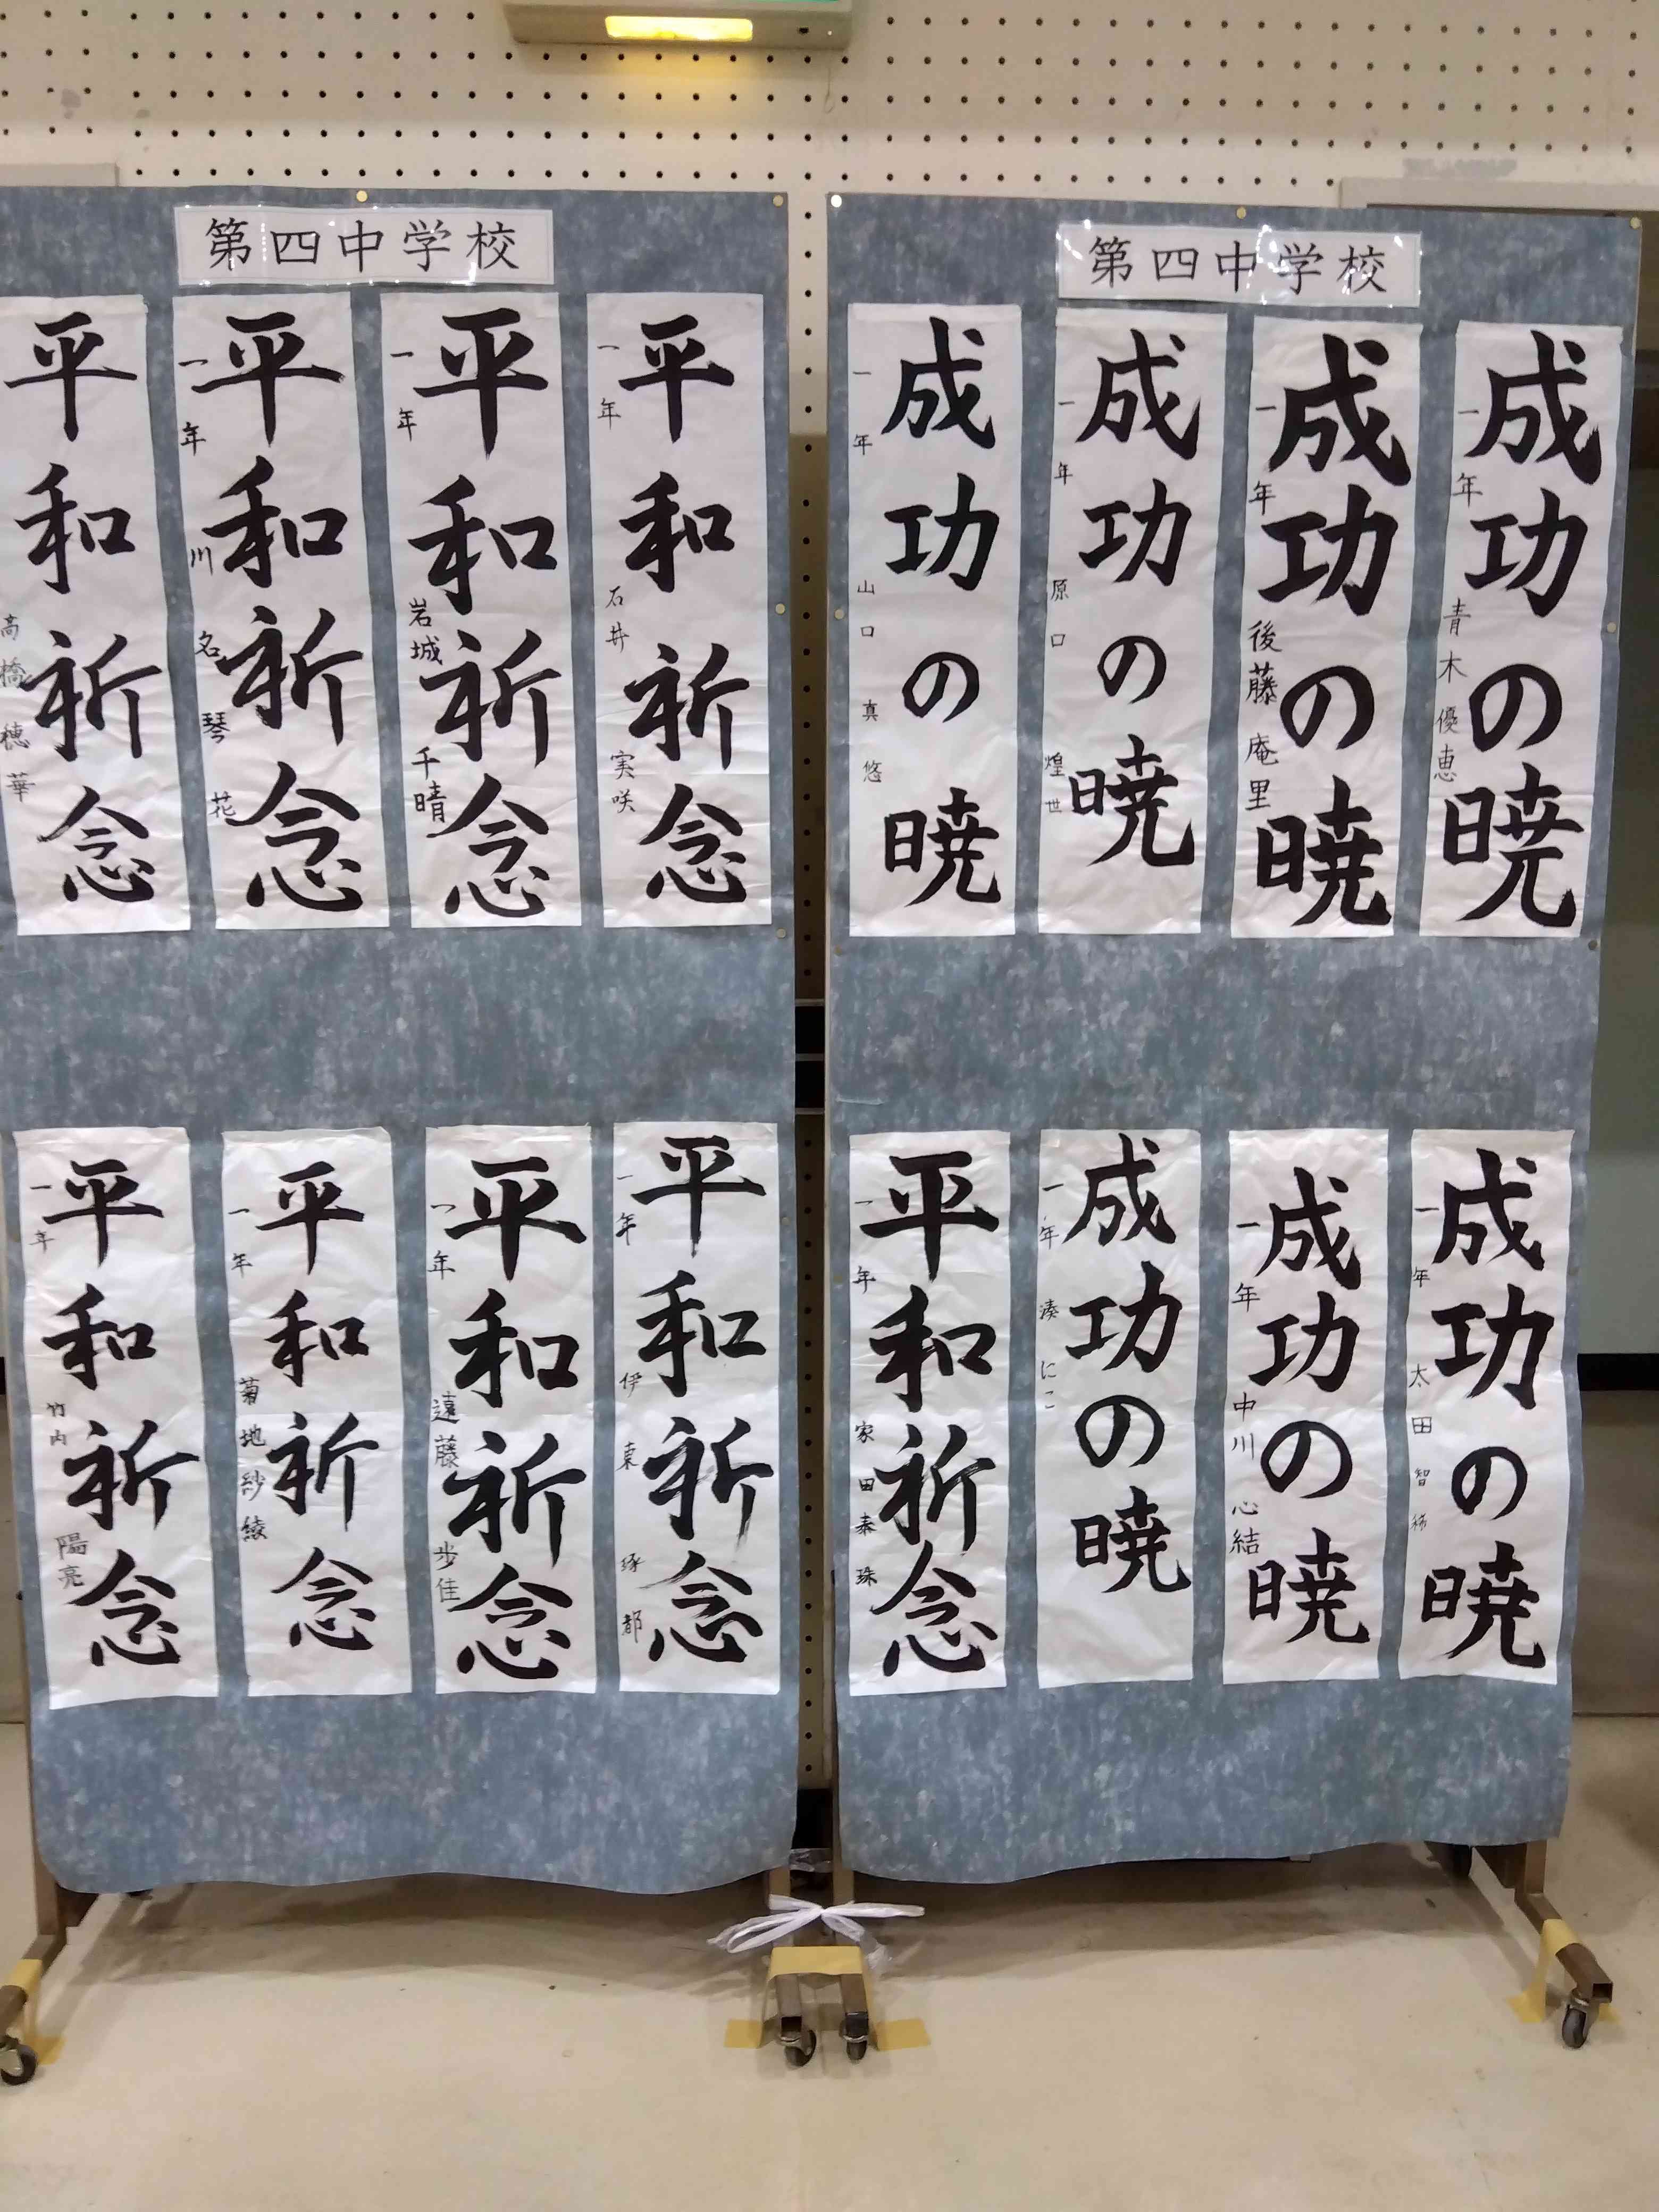 第四中学校
平和祈念
一年 石井 実咲
平和祈念
一年 岩城 千晴
平和祈念
一年 川名 琴花
平和祈念
高橋 穂華
平和祈念
一年 伊東 琢都
平和祈念
一年 遠藤 歩佳
平和祈念
一年 菊地 紗綾
平和祈念
一年 竹内 陽亮
第四中学校
成功の暁
一年 青木 優恵
成功の暁
一年 後藤 庵里
成功の暁
一年 原口 煌世
成功の暁
一年 山口 真悠
成功の暁
一年 太田 智
成功の暁
一年 中川 心結
成功の暁
一年 湊 にこ
平和祈念
一年 家田 泰珠